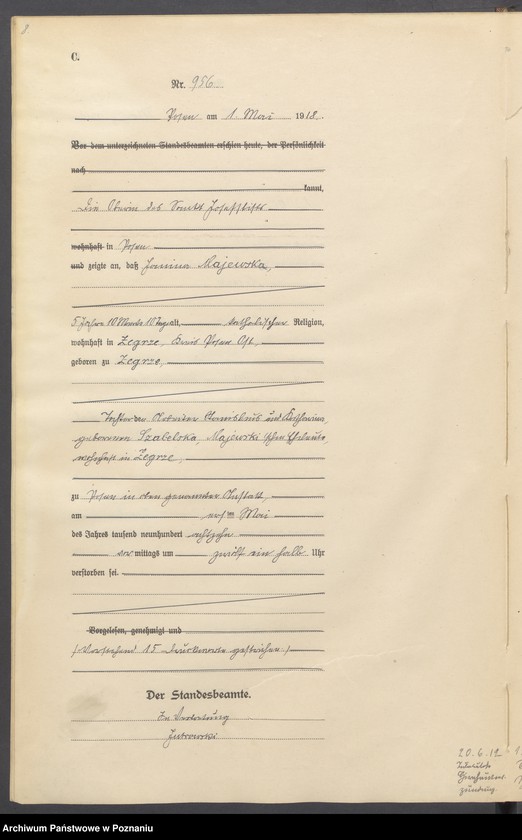 8
C.
Nr. 956
Posen am 1. Mai 1918.
Vor dem unterzeichneten Standesbeamten erschien heute, der Persönlichkeit
nach
kannt,
Die Oberin des Sankt Josefstifts
wohnhaft in Posen
und zeigte an, daß Janina Majewska,
5 Jahre 10 Monate 10 Tage alt, katholischer Religion,
wohnhaft in Zegrze, Kreis Posen Ost,
geboren zu Zegrze,
Tochter des Arbeiter Stanislaus und
geborenen Szabelska, Majewski'schen Eheleute,
wohnhaft in Zegrze,
zu Posen in der genannten Anstalt,
am ersten Mai
des Jahres tausend neunhundert achtzehn
vormittags um zwölf ein halb Uhr
verstorben sei.
Vorgelesen, genehmigt und
(Vorstehend 15 Druckworte gestrichen.)
Der Standesbeamte.
In Vertretung
20.6.12
Archiwum Państwowe w Poznaniu